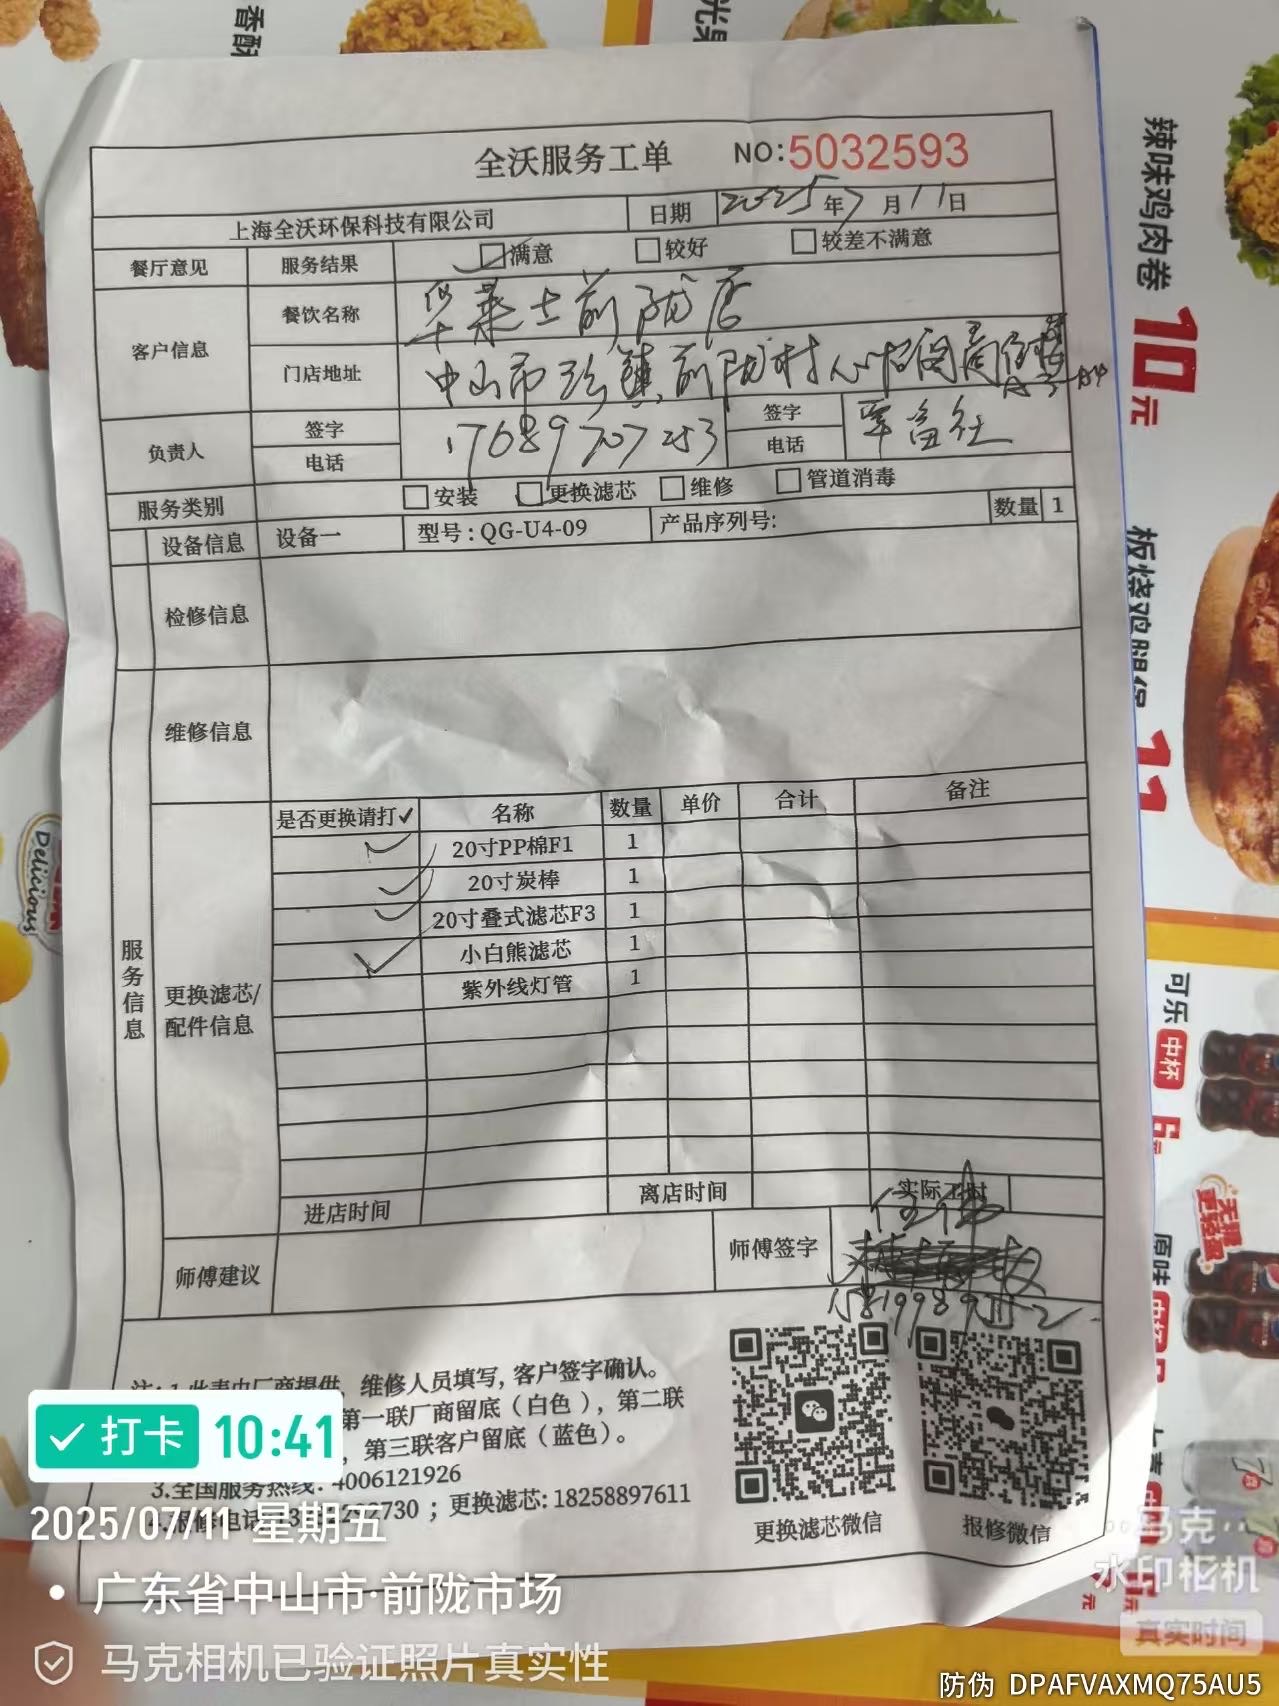 香酥
全沃服务工单 NO:5032593
上海全沃环保科技有限公司 日期 2025年7月11日
餐厅意见 服务结果 满意 较好 较差不满意
客户信息 餐饮名称 华莱士前陇店
门店地址 中山市 镇前陇村
负责人 签字 电话 17689707253 签字 电话
服务类别 安装 更换滤芯 维修 管道消毒
设备信息 设备一 型号:QG-U4-09 产品序列号: 数量 1
检修信息
维修信息
服务信息
更换滤芯/
配件信息
是否更换请打✓ 名称 数量 单价 合计 备注
✓ 20寸PP棉F1 1
✓ 20寸炭棒 1
✓ 20寸叠式滤芯F3 1
✓ 小白熊滤芯 1
紫外线灯管 1
进店时间 离店时间 实际工时
师傅建议 师傅签字 任伟
维修人员填写,客户签字确认。
第一联厂商留底(白色),第二联
第三联客户留底(蓝色)。
3.全国服务热线:4006121926
2730;更换滤芯:18258897611
更换滤芯微信 报修微信
辣味鸡肉卷
10元
板烧鸡腿堡
11
可乐
中杯
6元
无糖
更轻盈
原味
Delicious
打卡 10:41
2025/07/11 星期五
广东省中山市·前陇市场
马克相机已验证照片真实性
马克
水印相机
真实时间
防伪 DPAFVAXMQ75AU5